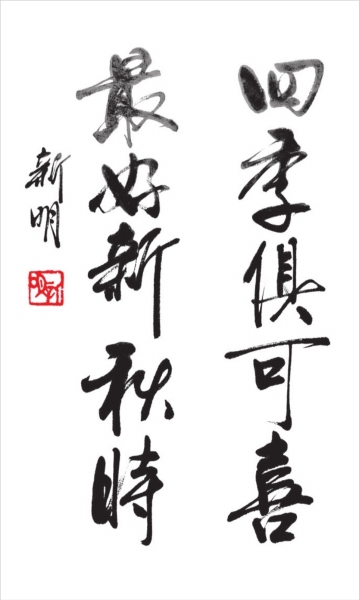 四季俱可喜
最好新秋時
新明